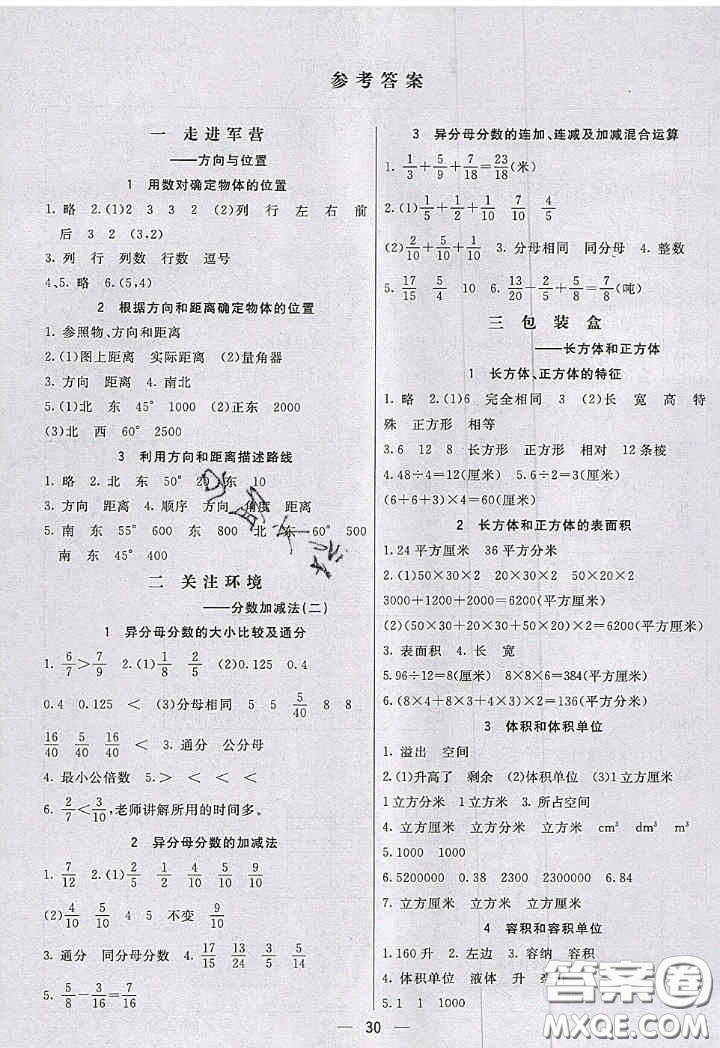 参考答案
一 走进军营
——方向与位置
1 用数对确定物体的位置
1. 略 2. (1)2 3 3 2 (2)列 行 左 右 前
后 3 2 (3,2)
3. 列 行 列数 行数 逗号
4、5. 略 6. (5,4)
2 根据方向和距离确定物体的位置
1. 参照物、方向和距离
2. (1)图上距离 实际距离 (2)量角器
3. 方向 距离 4. 南北
5. (1)北 东 45° 1000 (2)正东 2000
(3)北 西 60° 2500
3 利用方向和距离描述路线
1. 略 2. 北 东 50° 20 东 10
3. 方向 距离 4. 顺序 方向 角度 距离
5. 南 东 55° 600 东 800 北 东 60° 500
南 东 20° 400
二 关注环境
——分数加减法(二)
1 异分母分数的大小比较及通分
1. 6/7>7/9 2. (1) 1/8 2/5 (2)0.125 0.4
0.4 0.125 < (3)分母相同 5 5 5/40 8 8
16/40 16/40 5/40 < 3. 通分 公分母
4. 最小公倍数 5. > < < <
6. 2/7<3/10, 老师讲解所用的时间多。
2 异分母分数的加减法
1. 7/12 2. (1) 2/10 5/10 2/10 4/10
(2) 4/10 4 5 不变 9/10
3. 通分 同分母分数 4. 17/15 13/24 3/10 5/14
5. 5/8-3/16=7/16
3 异分母分数的连加、连减及加减混合运算
1. 1/3+5/9+7/18=23/18(米)
2. (1) 1/5+1/2+1/10 7/10 4/5
(2) 1/10+1/2 3. 分母相同 同分母 4. 整数
5. 17/15 5/4 10 6. 13/20-2/5+5/8=7/8(吨)
三 包装盒
——长方体和正方体
1 长方体、正方体的特征
1. 略 2. (1)6 完全相同 3 (2)长 宽 高 特
殊 正方形 相等
3. 6 12 8 长方形 正方形 相对 12条棱
4. 48÷4=12(厘米) 5. 6×2=3(厘米)
(6+6+3)×4=60(厘米)
2 长方体和正方体的表面积
1. 24平方厘米 36平方分米
2. (1)50×30×2 20×30×2 50×20×2
3000+1200+2000=6200(平方厘米)
(2)(50×30+20×30+50×20)×2=6200(平方厘米)
3. 表面积 4. 长 宽
5. 96÷12=8(厘米) 8×8×6=384(平方厘米)
6. (8×4+8×3+4×3)×2=136(平方分米)
3 体积和体积单位
1. 溢出 空间
2. (1)升高了 剩余 (2)体积单位 (3)1立方厘米
1立方分米 1立方米 3. 所占空间
4. 立方厘米 立方分米 立方米 cm³ dm³ m³
5. 1000 1000
6. 5200000 0.38 2300 2300000 6.84
7. 立方厘米 立方分米 立方米
4 容积和容积单位
1. 160升 2. 左边 3. 容纳 容积
4. 体积单位 液体 升
5. 1 1 1000
30
答案圈
MXQE.COM